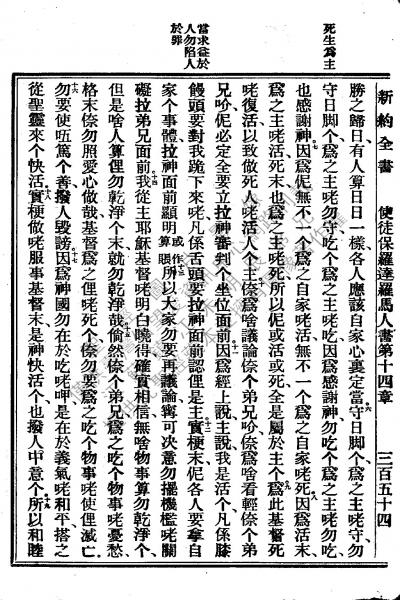 死生爲主
當求益於
人勿陷人
於罪
新約全書　使徒保羅達羅馬人書第十四章　三百五十四
勝之歸日、有人算日日一樣、各人應該自家心裏定當、守日脚个、爲之主咾守、勿
守日脚个、爲之主咾勿守、吃咾、爲之主咾吃、因爲感謝神、勿吃个、爲之主咾勿吃、
也感謝神、因爲伲無不一个爲之自家咾活、無不一个爲之自家咾死、因爲活末、
爲之主咾活、死末也爲之主咾死、所以伲或活或死、全是屬於主个、爲此基督死
咾復活、以致做死人咾活人个主、儂爲啥議論儂个弟兄呢、儂爲啥看輕儂个弟
兄呢、伲必定全要立拉神審判个坐位面前、因爲經上說、主說、我是活个、凡係膝
饅頭要對我跪下來、咾凡係舌頭要拉神面前認俚是主、實梗末伲各人要拿自
家个事體、拉神面前顯明、或作算賬所以大家勿要再議論、寧可决意勿擺機檻咾關
礙拉弟兄面前、我從主耶穌基督咾明白曉得、確實相信、無啥物事算勿乾淨个、
但是啥人算俚勿乾淨个末、就勿乾淨哉、倘然儂个弟兄爲之吃个物事咾憂愁、
格末儂勿照愛心做哉、基督爲之俚咾死个、儂勿要爲之吃个物事咾使俚滅亡、
勿要使㑚篤个善、撥人毀謗、因爲神國勿在於吃咾呷、是在於義氣咾和平、搭之
從聖靈來个快活、實梗做咾服事基督末、是神快活个、也撥人中意个、所以和睦